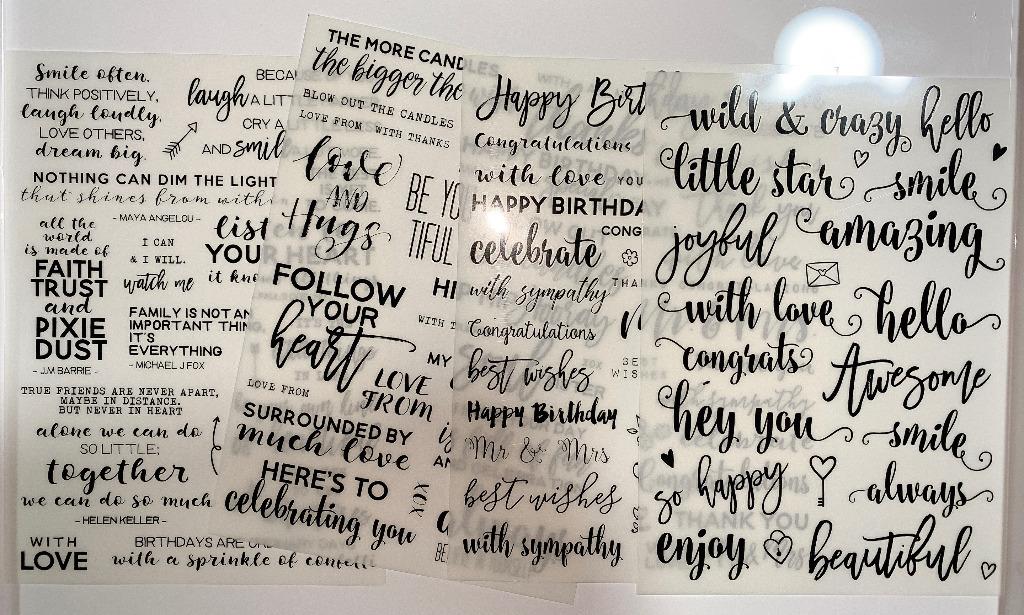 Smile often.
THINK POSITIVELY,
laugh loudly.
LOVE OTHERS,
dream big.
laugh
AND
NOTHING CAN DIM THE LIGHT
that shines from
- MAYA ANGELOU -
all the
world
is made of
FAITH
TRUST
and
PIXIE
DUST
- J.M BARRIE -
I CAN
& I WILL.
watch me
YOU
FAMILY IS NOT AN
IMPORTANT
IT'S
EVERYTHING
- MICHAEL J FOX
TRUE FRIENDS ARE NEVER APART,
MAYBE IN DISTANCE.
BUT NEVER IN HEART
alone we can do
SO LITTLE;
together
we can do so much
- HELEN KELLER -
WITH
LOVE
BIRTHDAYS ARE
with a sprinkle of
THE MORE
the bigger the
BLOW OUT THE CANDLES
LOVE FROM WITH THANKS
love
AND
Hugs
BE
FOLLOW
YOUR
heart
MY
LOVE
FROM
LOVE FROM
SURROUNDED BY
much love
HERE'S TO
celebrating you
Happy
Congratulations
with love YOU
HAPPY
celebrate
with sympathy
Congratulations
best wishes
BEST
WISHES
Happy Birthday
Mr & Mrs
best wishes
with sympathy
wild & crazy hello
little star smile
joyful amazing
with love hello
congrats Awesome
hey you smile
so happy always
enjoy beautiful
THANK YOU